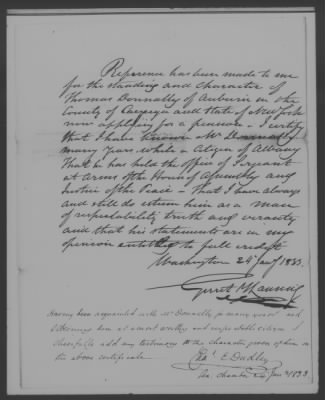 Reference has been made to me
for the standing and character of
Thomas Donnally of Auburn in the
County of Cayuga and State of New York
now applying for a pension. I certify
that I have known Mr Donnally
many years, while a citizen of Albany
That he has held the office of Sergeant
at Arms of the House of Assembly and
Justice of the Peace - That I have always
and still do esteem him as a man
of respectability truth and veracity
and that his statements are in my
opinion entitled to full credit
Washington 24 Jany 1853.
Gerrit
Having been acquainted with Mr Donnally for many years and
esteeming him a most worthy and respectable citizen I
cheerfully add my testimony to the character given of him in
the above certificate.
Chas. E. Dudley
Jan